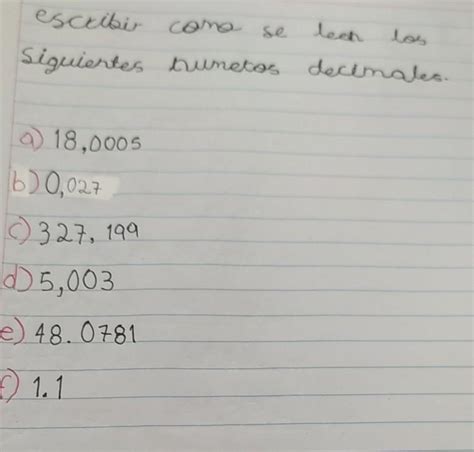 escribir como se leen los
siguientes numeros decimales.
a) 18,0005
b) 0,027
c) 327,199
d) 5,003
e) 48.0781
f) 1.1